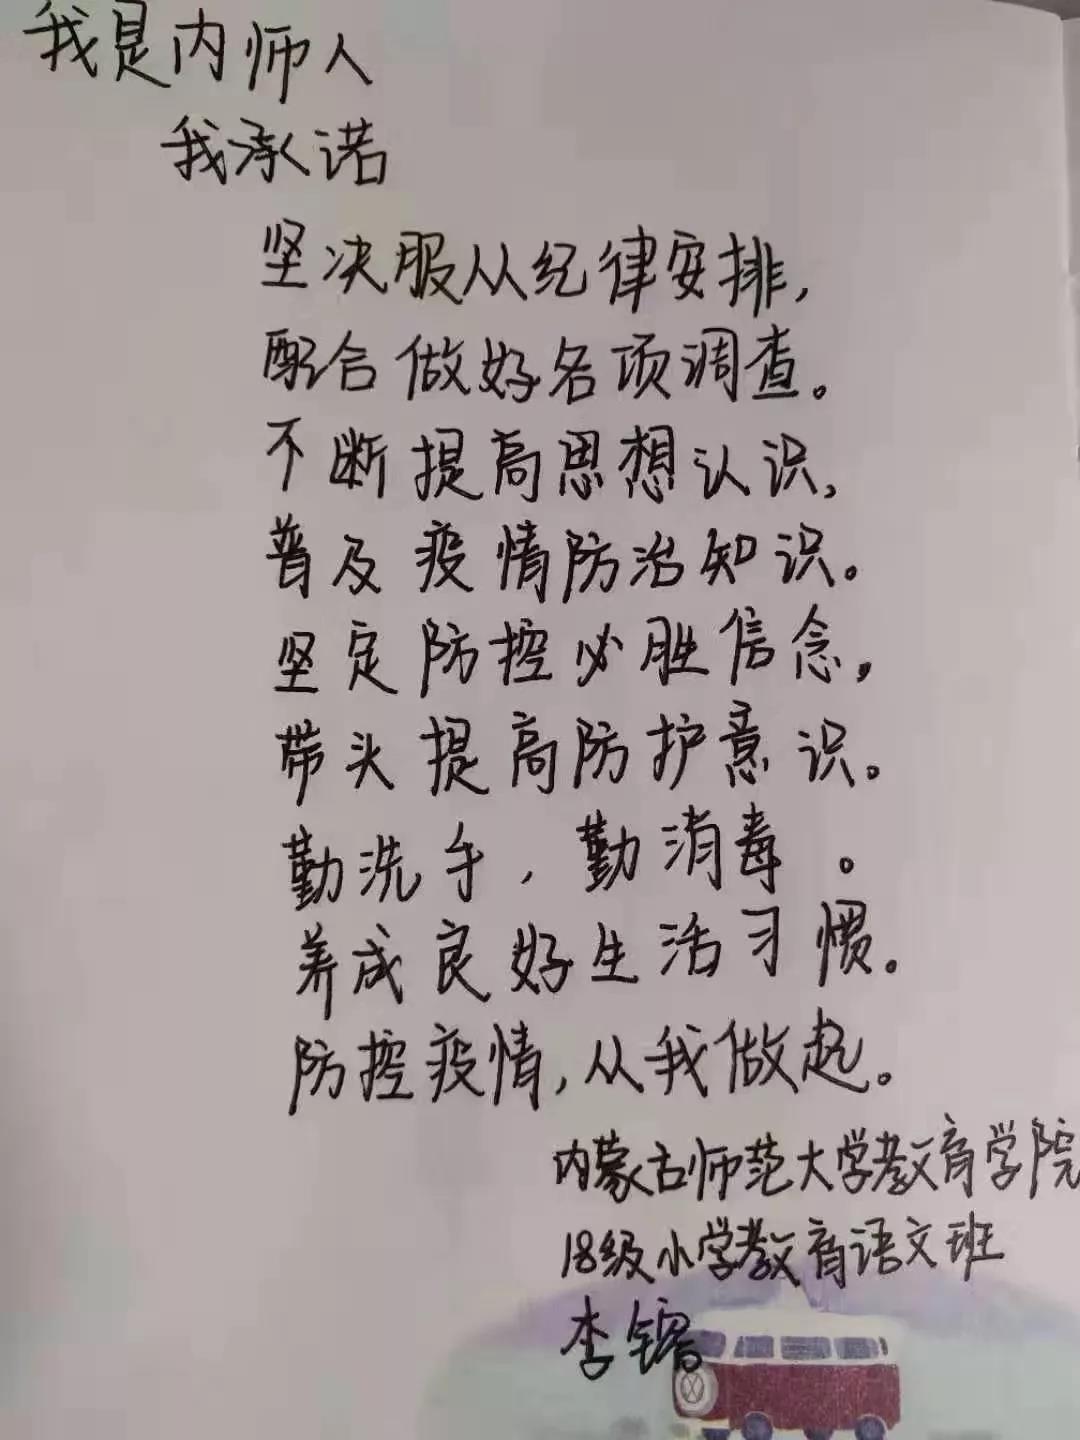 我是内师人
我承诺
坚决服从纪律安排,
配合做好各项调查。
不断提高思想认识,
普及疫情防治知识。
坚定防控必胜信念,
带头提高防护意识。
勤洗手,勤消毒。
养成良好生活习惯。
防控疫情,从我做起。
内蒙古师范大学教育学院
18级小学教育语文班
李